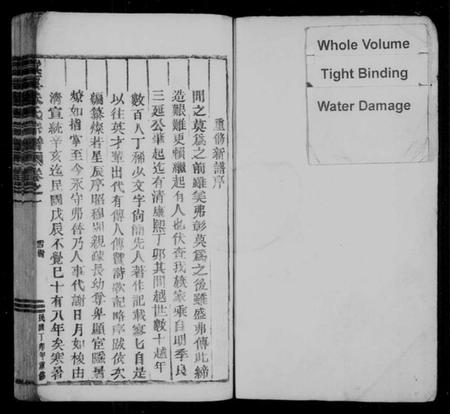 重修新譜序
聞之莫爲之前雖美弗彰莫爲之後雖盛弗傳此締
造艱難更賴繼起有人也伏查我族家乘自明季良
三延公肇起迄有清康熙丁卯其間越世數十越年
數百人丁稀少文字尙簡先人著作記載寥匕自是
以往英才輩出代有傳人傳贊詩歌記略序跋依次
編纂燦若星辰序昭穆別親疎長幼尊卑顯宦隱
瞭如指掌至今永守弗替乃人事代謝日月如梭由
淸宣統辛亥迄民國戊辰不覺已十有八年矣寒暑
Whole Volume
Tight Binding
Water Damage